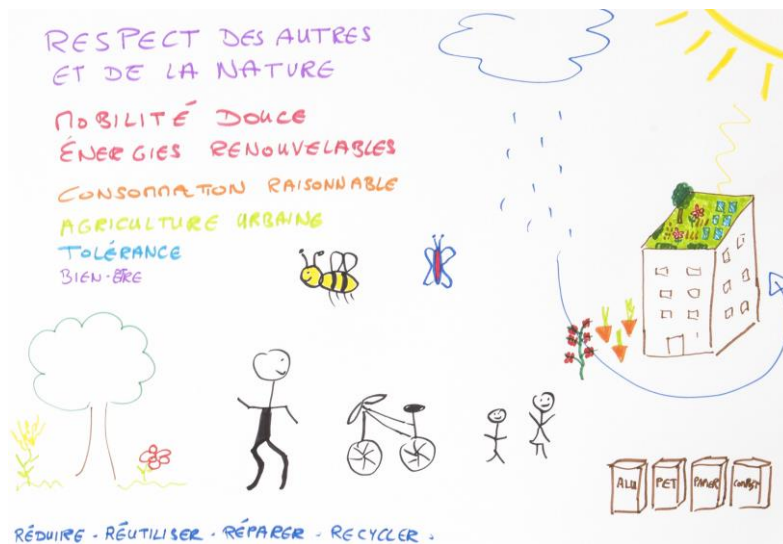 RESPECT DES AUTRES
ET DE LA NATURE
MOBILITÉ DOUCE
ÉNERGIES RENOUVELABLES
CONSOMMATION RAISONNABLE
AGRICULTURE URBAINE
TOLÉRANCE
BIEN-ÊTRE
ALU PET PAPIER COMPOST
RÉDUIRE - RÉUTILISER - RÉPARER - RECYCLER.